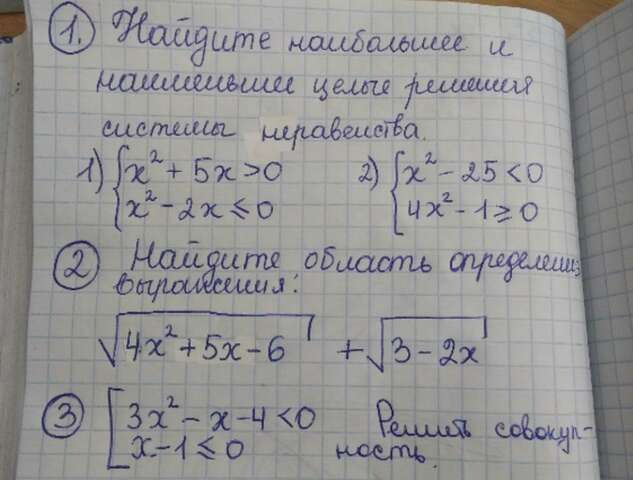 1. Найдите наибольшее и
наименьшее целые решения
системы неравенства.
1) { x² + 5x > 0 2) { x² - 25 < 0
{ x² - 2x ≤ 0 { 4x² - 1 ≥ 0
2 Найдите область определения
выражения:
√(4x² + 5x - 6) + √(3 - 2x)
3 [ 3x² - x - 4 < 0 Решить совокуп-
[ x - 1 ≤ 0 ность.